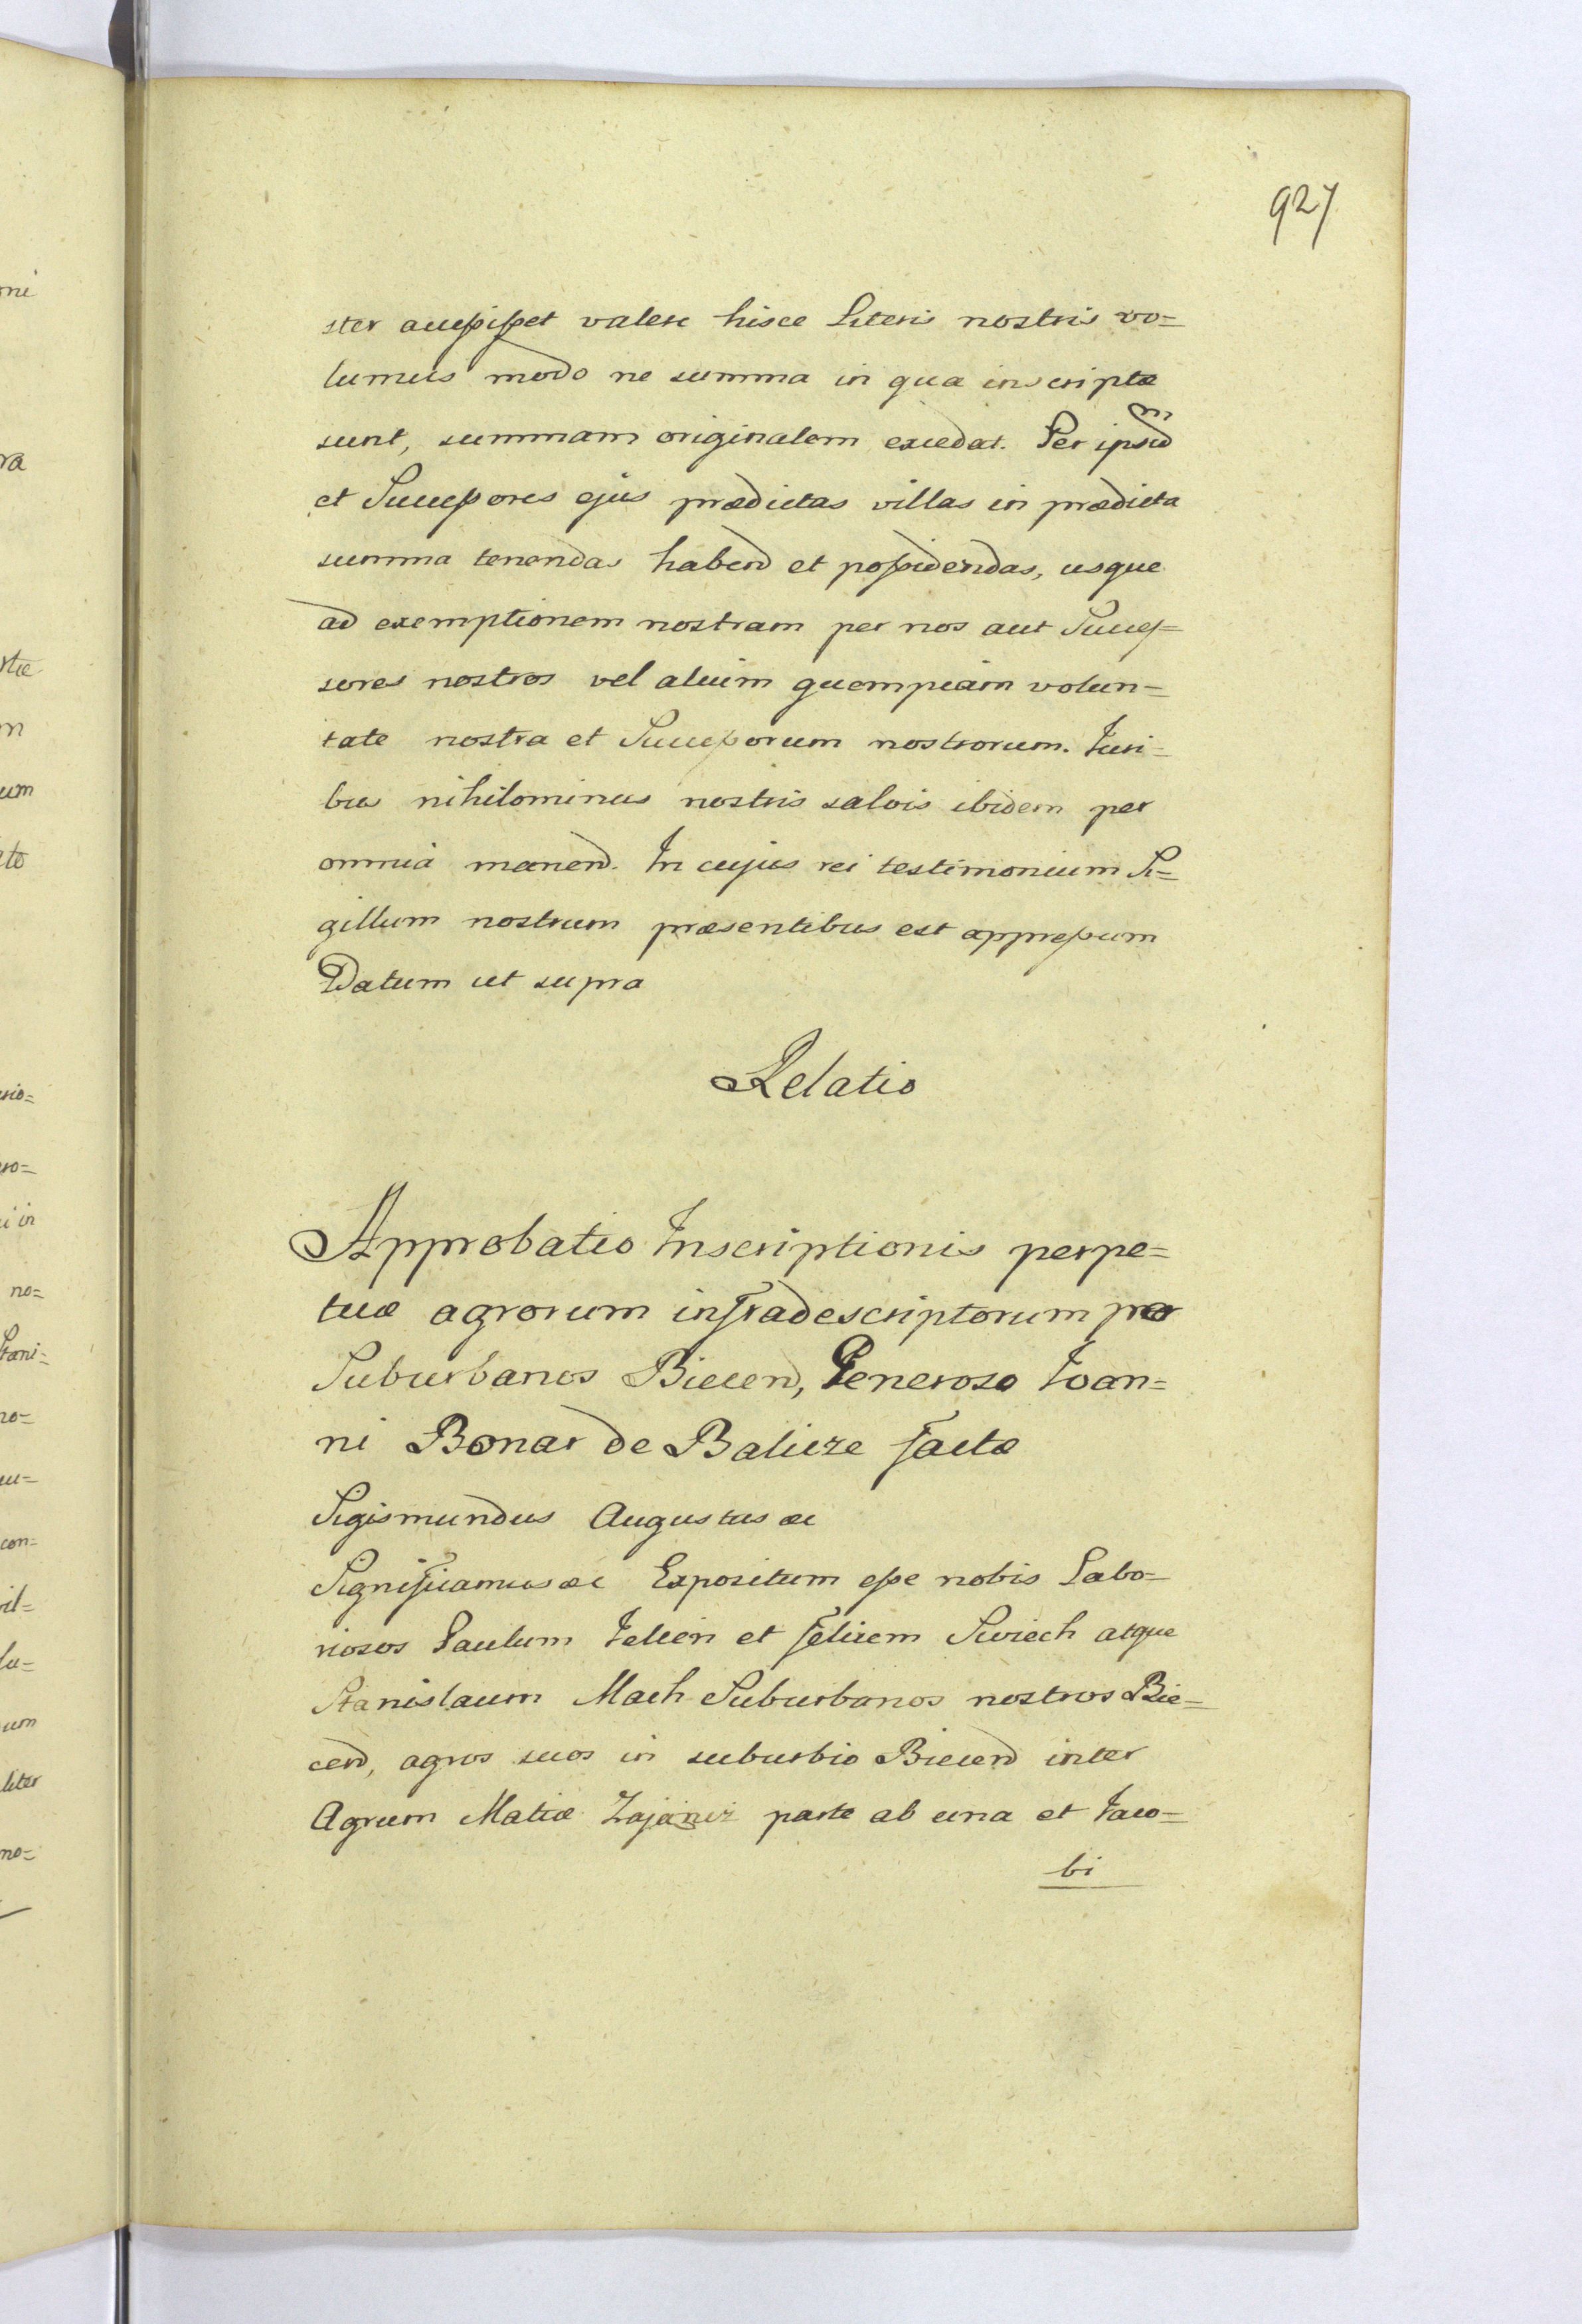 927
ster accessisset valere hisce Literis nostris vo=
lumus modo ne summa in qua inscriptæ
sunt, summam originalem excedat. Per ipsum
et Successores ejus prædictas villas in prædicta
summa tenendas habend et possidendas, usque
ad exemptionem nostram per nos aut Succes=
sores nostros vel alium quempiam volun=
tate nostra et Successorum nostrorum. Juri=
bus nihilominus nostris salvis ibidem per
omnia manend. In cujus rei testimonium Si=
gillum nostrum præsentibus est appressum
Datum ut supra
Relatio
Approbatio Inscriptionis perpe=
tuæ agrorum infradescriptorum per
Suburbanos Biecen, Generoso Joan=
ni Bonar de Balicze factæ
Sigismundus Augustus ac
Significamus ac Expositum esse nobis Labo=
riosos Paulum Jelien et Felicem Swiech atque
Stanislaum Mach Suburbanos nostros Bie=
cend, agros suos in suburbio Biecend inter
Agrum Matiæ Zajancz parte ab una et Jaco=
bi